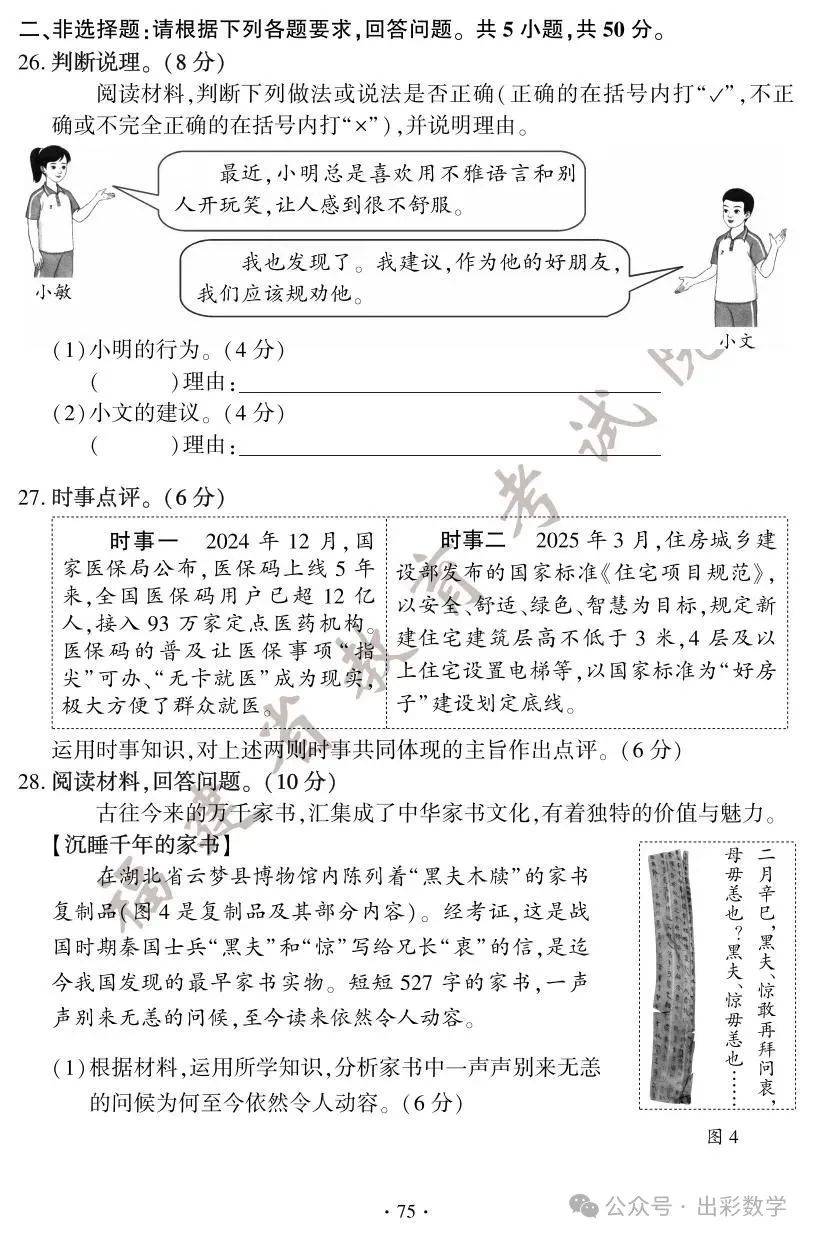 二、非选择题:请根据下列各题要求,回答问题。共5小题,共50分。
26. 判断说理。(8分)
阅读材料,判断下列做法或说法是否正确(正确的在括号内打“✓”,不正
确或不完全正确的在括号内打“×”),并说明理由。
最近,小明总是喜欢用不雅语言和别
人开玩笑,让人感到很不舒服。
小敏
我也发现了。我建议,作为他的好朋友,
我们应该规劝他。
小文
(1)小明的行为。(4分)
(    )理由:
(2)小文的建议。(4分)
(    )理由:
27. 时事点评。(6分)
时事一 2024年12月,国
家医保局公布,医保码上线5年
来,全国医保码用户已超12亿
人,接入93万家定点医药机构。
医保码的普及让医保事项“指
尖”可办、“无卡就医”成为现实,
极大方便了群众就医。
时事二 2025年3月,住房城乡建
设部发布的国家标准《住宅项目规范》,
以安全、舒适、绿色、智慧为目标,规定新
建住宅建筑层高不低于3米,4层及以
上住宅设置电梯等,以国家标准为“好房
子”建设划定底线。
运用时事知识,对上述两则时事共同体现的主旨作出点评。(6分)
28. 阅读材料,回答问题。(10分)
古往今来的万千家书,汇集成了中华家书文化,有着独特的价值与魅力。
【沉睡千年的家书】
在湖北省云梦县博物馆内陈列着“黑夫木牍”的家书
复制品(图4是复制品及其部分内容)。经考证,这是战
国时期秦国士兵“黑夫”和“惊”写给兄长“衷”的信,是迄
今我国发现的最早家书实物。短短527字的家书,一声
声别来无恙的问候,至今读来依然令人动容。
二月辛巳,黑夫、惊敢再拜问衷,
母毋恙也?黑夫、惊毋恙也……
图4
(1)根据材料,运用所学知识,分析家书中一声声别来无恙
的问候为何至今依然令人动容。(6分)
福建省教育考试院
·75·
公众号·出彩数学